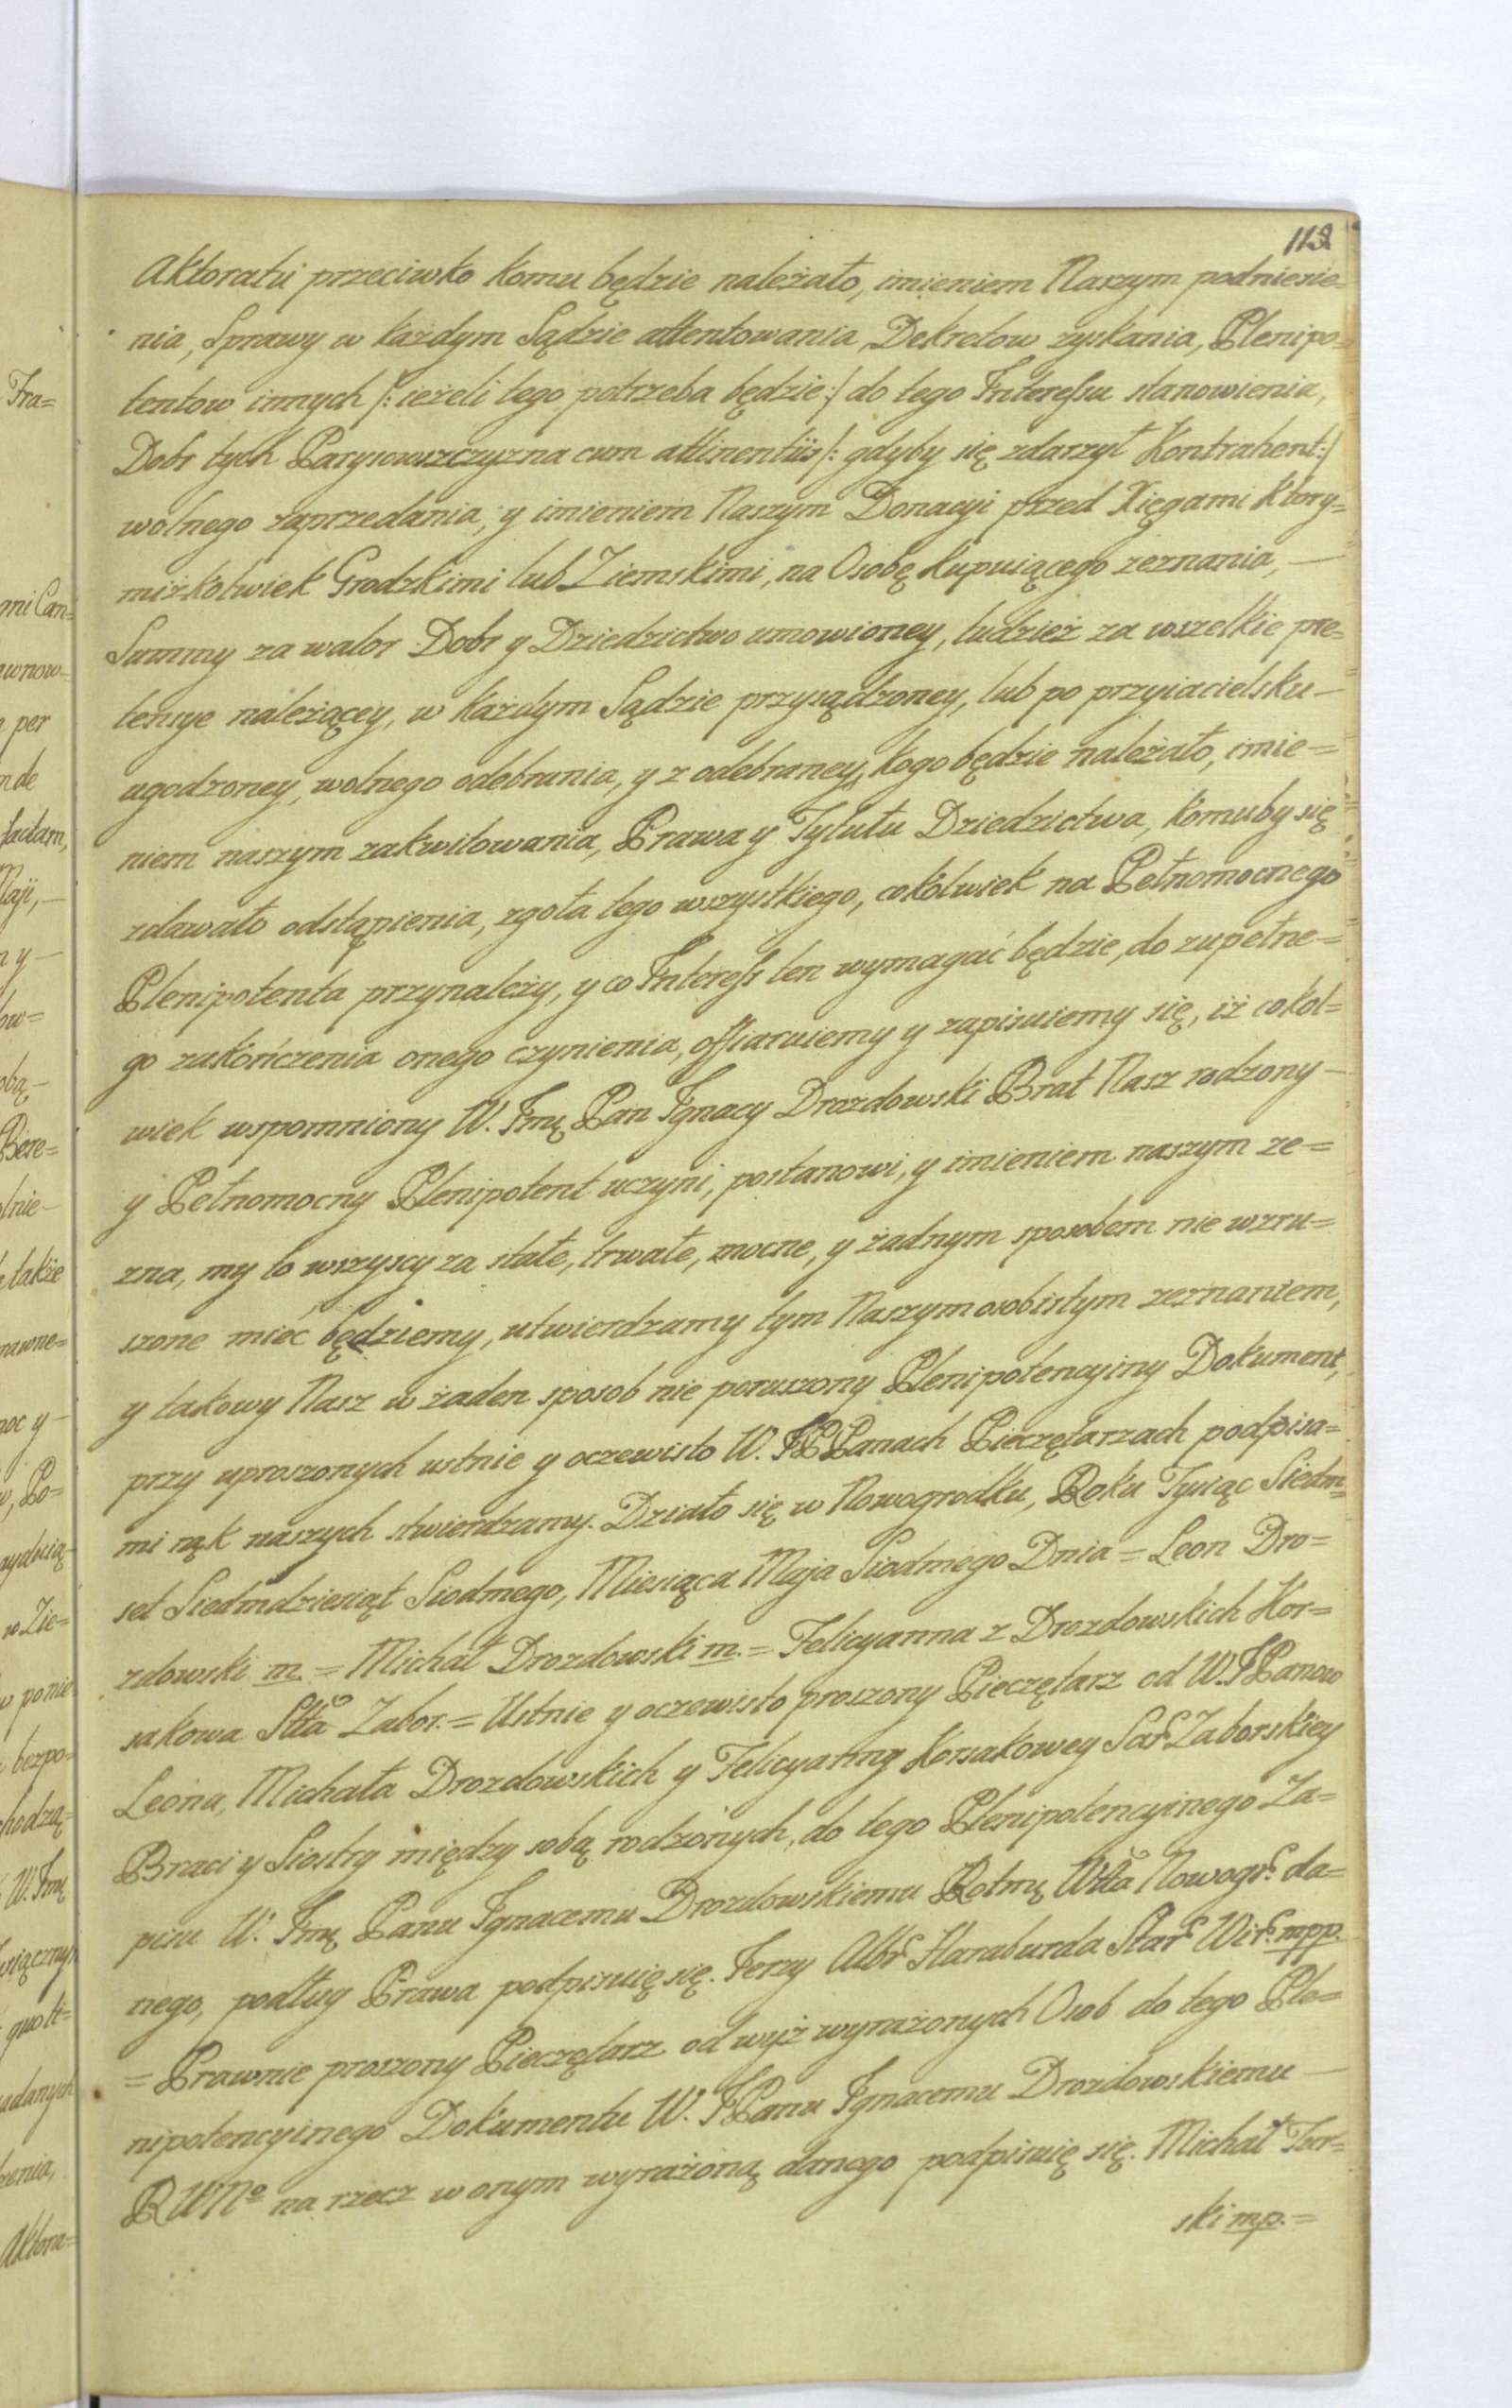 113
Aktoratu przeciwko komu będzie należało, imieniem Naszym podniesie=
nia, Sprawy w każdym Sądzie attentowania, Dekretow zyskania, Plenipo=
tentow innych /: ieżeli tego potrzeba będzie :/ do tego Interessu stanowienia,
Dobr tych Parysowszczyzna cum attinentiis /: gdyby się zdarzył Kontrahent :/
wolnego zaprzedania, y imieniem Naszym Donacyi przed Xięgami ktory=
miżkolwiek Grodzkimi lub Ziemskimi, na Osobę kupuiącego zeznania, —
Summy za walor Dobr y Dziedzictwo umowioney, tudzież za wszelkie pre=
tensye należącey, w każdym Sądzie przysądzoney, lub po przyiacielsku —
ugodzoney, wolnego odebrania, y z odebraney, kogo będzie należało, imie=
niem naszym zakwitowania, Prawa y Tytułu Dziedzictwa, komuby się
zdawało odstąpienia, zgoła tego wszystkiego, cokolwiek na Pełnomocnego
Plenipotenta przynależy, y co Interess ten wymagać będzie, do zupełne=
go zakończenia onego czynienia, offiaruiemy y zapisuiemy się, iż cokol=
wiek wspomniony W. Jmę Pan Ignacy Drozdowski Brat Nasz rodzony —
y Pełnomocny Plenipotent uczyni, postanowi, y imieniem naszym ze=
zna, my to wszyscy za stałe, trwałe, mocne, y żadnym sposobem nie wzru=
szone mieć będziemy, utwierdzamy tym Naszym osobistym zeznaniem,
y takowy Nasz w żaden sposob nie poruszony Plenipotencyiny Dokument,
przy uproszonych ustnie y oczewisto W. JPPanach Pieczętarzach podpisa=
mi rąk naszych stwierdzamy. Działo się w Nowogrodku, Roku Tysiąc Siedm=
set Siedmdziesiąt Siodmego, Miesiąca Maja Siodmego Dnia = Leon Dro=
zdowski m. = Michał Drozdowski m. = Felicyanna z Drozdowskich Kor=
sakowa Stta Zabor. = Ustnie y oczewisto proszony Pieczętarz od W. JPanow
Leona, Michała Drozdowskich y Felicyanny Korsakowey Sař Zaborskiey
Braci y Siostry między sobą rodzonych, do tego Plenipotencyinego Za=
pisu W. Jmę Panu Ignacemu Drozdowskiemu Rotmę Wtta Nowogř. da=
nego, podług Prawa podpisuię się. Jerzy Albř Haraburda Stař Wiř. mpp.
= Prawnie proszony Pieczętarz od wyż wyrażonych Osob do tego Ple=
nipotencyinego Dokumentu W. JPanu Ignacemu Drozdowskiemu —
R W No na rzecz w onym wyrażoną danego podpisuię się. Michał Tur=
ski mp. =
Fra=
mi Can=
wnow=
per
nde
factam,
Maji, —
ny —
ow=
obą —
Bere=
lnie —
także
rawne=
moc y —
w, Po=
w Zie=
w ponie
bezpo=
hodzą=
W. Jmę
quoti=
adanych
henia,
Aktora=